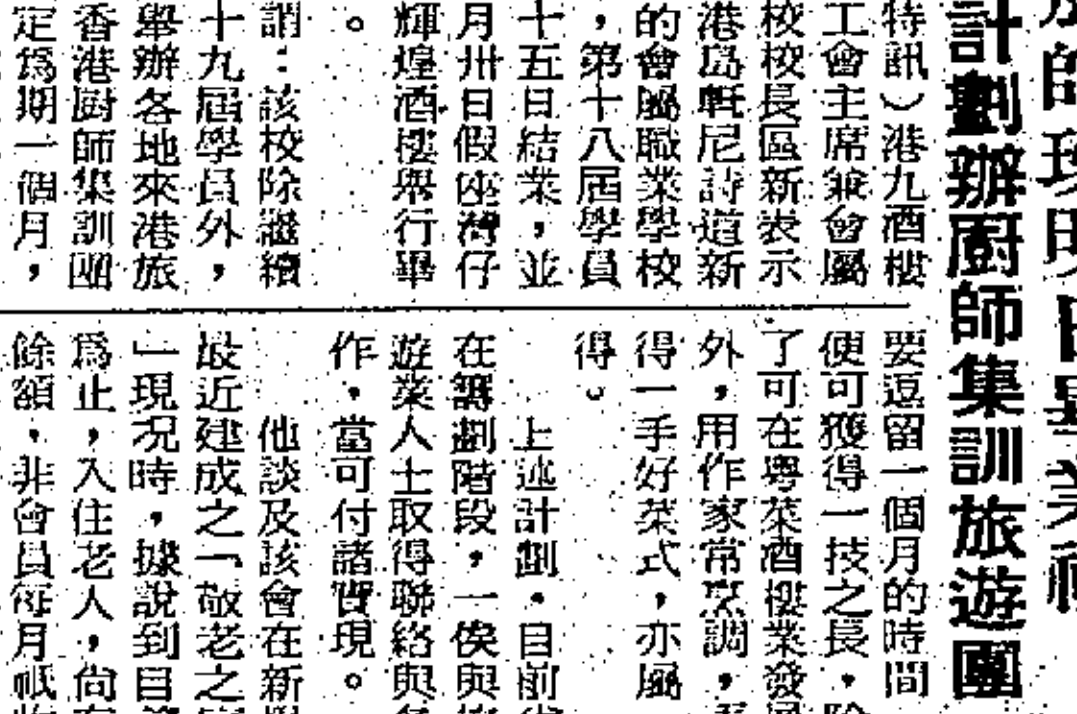 計劃辦厨師集訓旅遊團
特訊）港九酒樓
工會主席兼會屬
校校長區新表示
港島軒尼詩道新
的會屬職業學校
，第十八屆學員
十五日結業，並
月卅日假座灣仔
輝煌酒樓舉行畢
。
謂：該校除繼續
十九屆學員外，
舉辦各地來港旅
香港厨師集訓團
定爲期一個月，
要逗留一個月的時間
便可獲得一技之長，除
了可在粤菜酒樓業發展
外，用作家常烹調，
得一手好菜式，亦屬
得。
上述計劃，目前
在籌劃階段，一俟與
遊業人士取得聯絡與
作，當可付諸實現。
他談及該會在新
最近建成之「敬老之
」現况時，據說到目
爲止，入住老人，尙
餘額，非會員每月祇